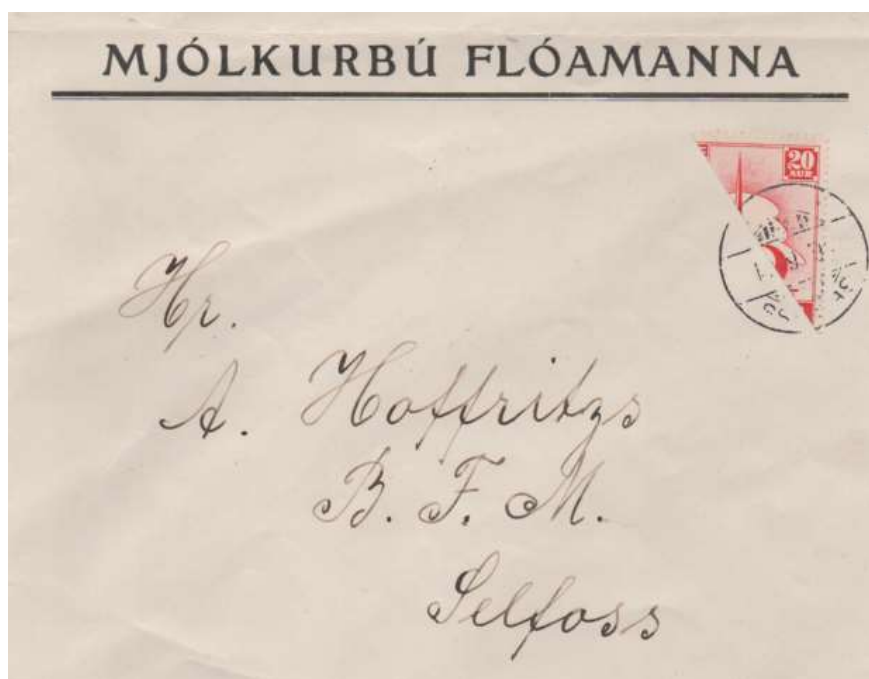 MJÓLKURBÚ FLÓAMANNA
20
AUR
Hr.
A. Hoffritzs
B. F. M.
Selfoss